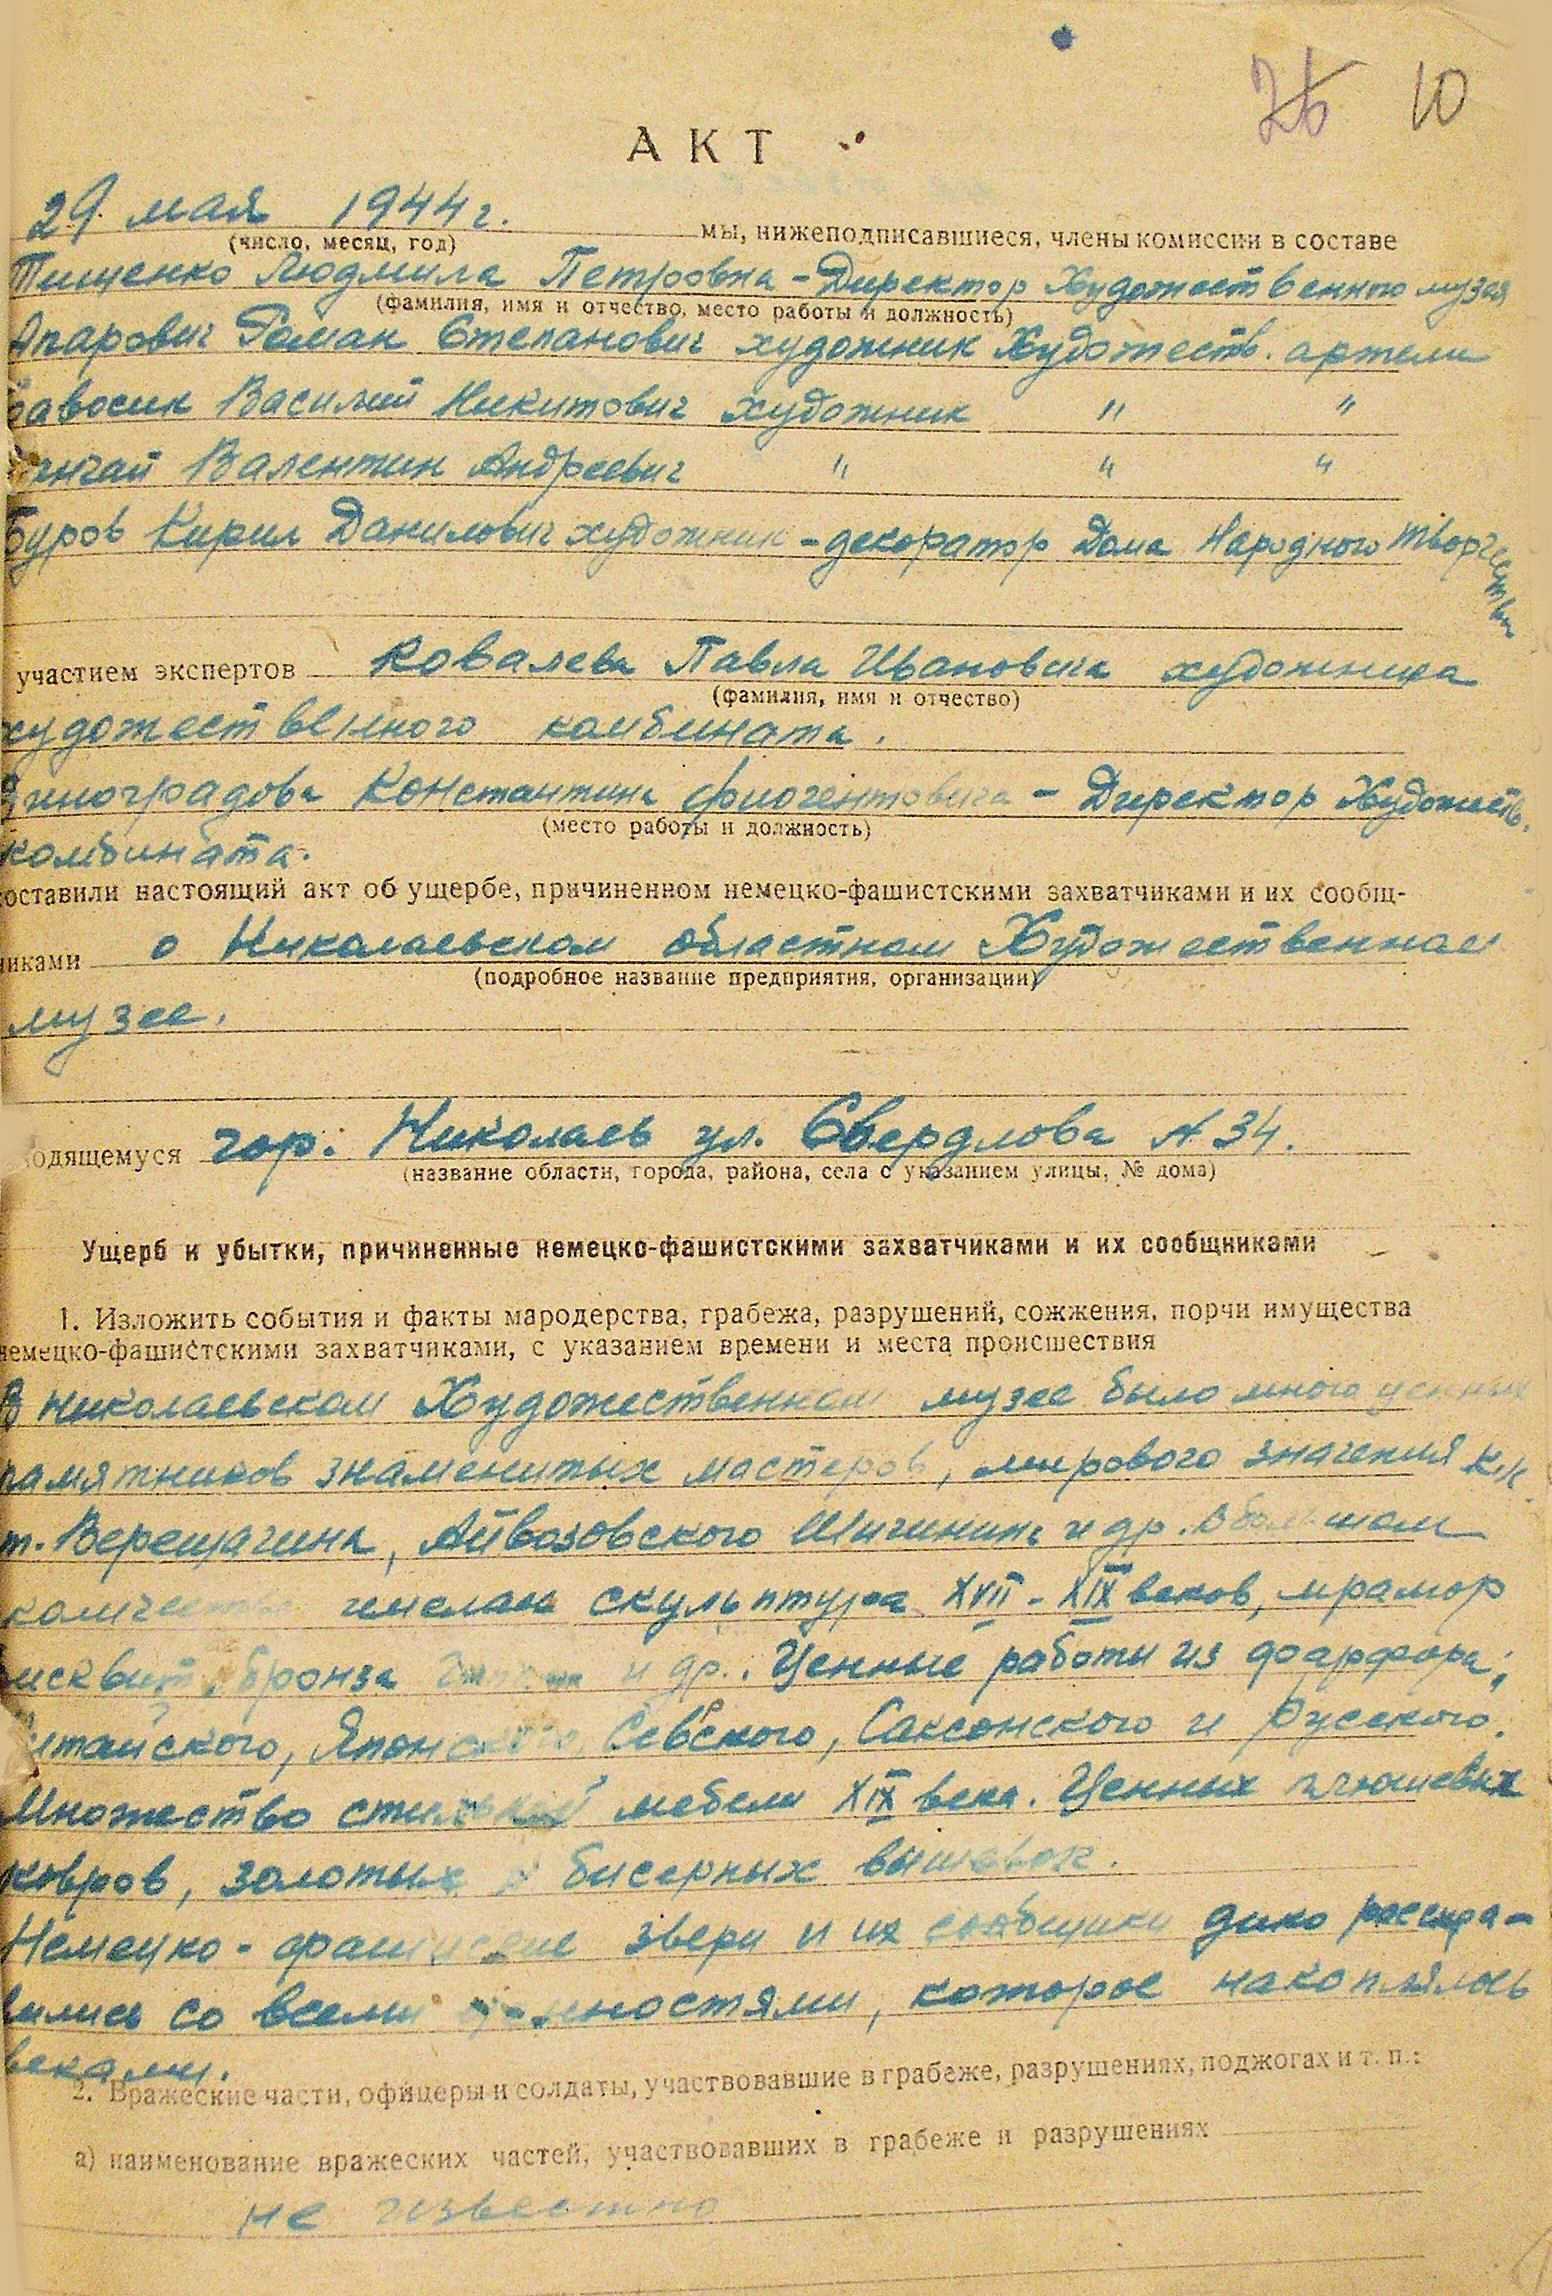 26 10
АКТ
29 мая 1944 г. мы, нижеподписавшиеся, члены комиссии в составе
(число, месяц, год)
Тищенко Людмила Петровна - Директор Художественного музея
(фамилия, имя и отчество, место работы и должность)
Апарович Роман Степанович художник Художеств. артели
Василий Никитович художник " "
Валентин Андреевич " " "
Буров Кирил Данилович художник - декоратор Дома Народного творчества
участием экспертов Ковалева Павла Ивановича художника
(фамилия, имя и отчество)
художественного комбината.
Виноградова Константина - Директор Художеств.
(место работы и должность)
комбината.
составили настоящий акт об ущербе, причиненном немецко-фашистскими захватчиками и их сообщ-
никами о Николаевском областном Художественном
(подробное название предприятия, организации)
музее.
одящемуся гор. Николаев ул. Свердлова № 34.
(название области, города, района, села с указанием улицы, № дома)
Ущерб и убытки, причиненные немецко-фашистскими захватчиками и их сообщниками
1. Изложить события и факты мародерства, грабежа, разрушений, сожжения, порчи имущества
немецко-фашистскими захватчиками, с указанием времени и места происшествия
В Николаевском Художественном музее было много ценных
памятников знаменитых мастеров, мирового значения как
т. Верещагина, Айвазовского Шишкина и др. В большом
количестве скульптура XVII - XIX веков, мрамор
бисквит, бронза и др. Ценные работы из фарфора;
Китайского, Японского, Севрского, Саксонского и Русского.
Множество стильной мебели XIX века. Ценных плюшевых
ковров, золотых и бисерных вышивок.
Немецко - фашистские звери и их сообщники дико расправ-
вились со всеми ценностями, которое накоплялось
веками.
2. Вражеские части, офицеры и солдаты, участвовавшие в грабеже, разрушениях, поджогах и т. п.:
а) наименование вражеских частей, участвовавших в грабеже и разрушениях
не известно